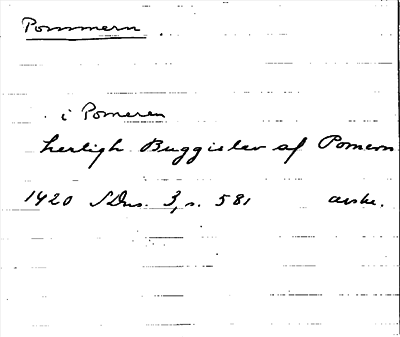 Pommern.
i Pomeren
hertigh Buggislev af Pomern
1420 SDns. 3, s. 581 avskr.